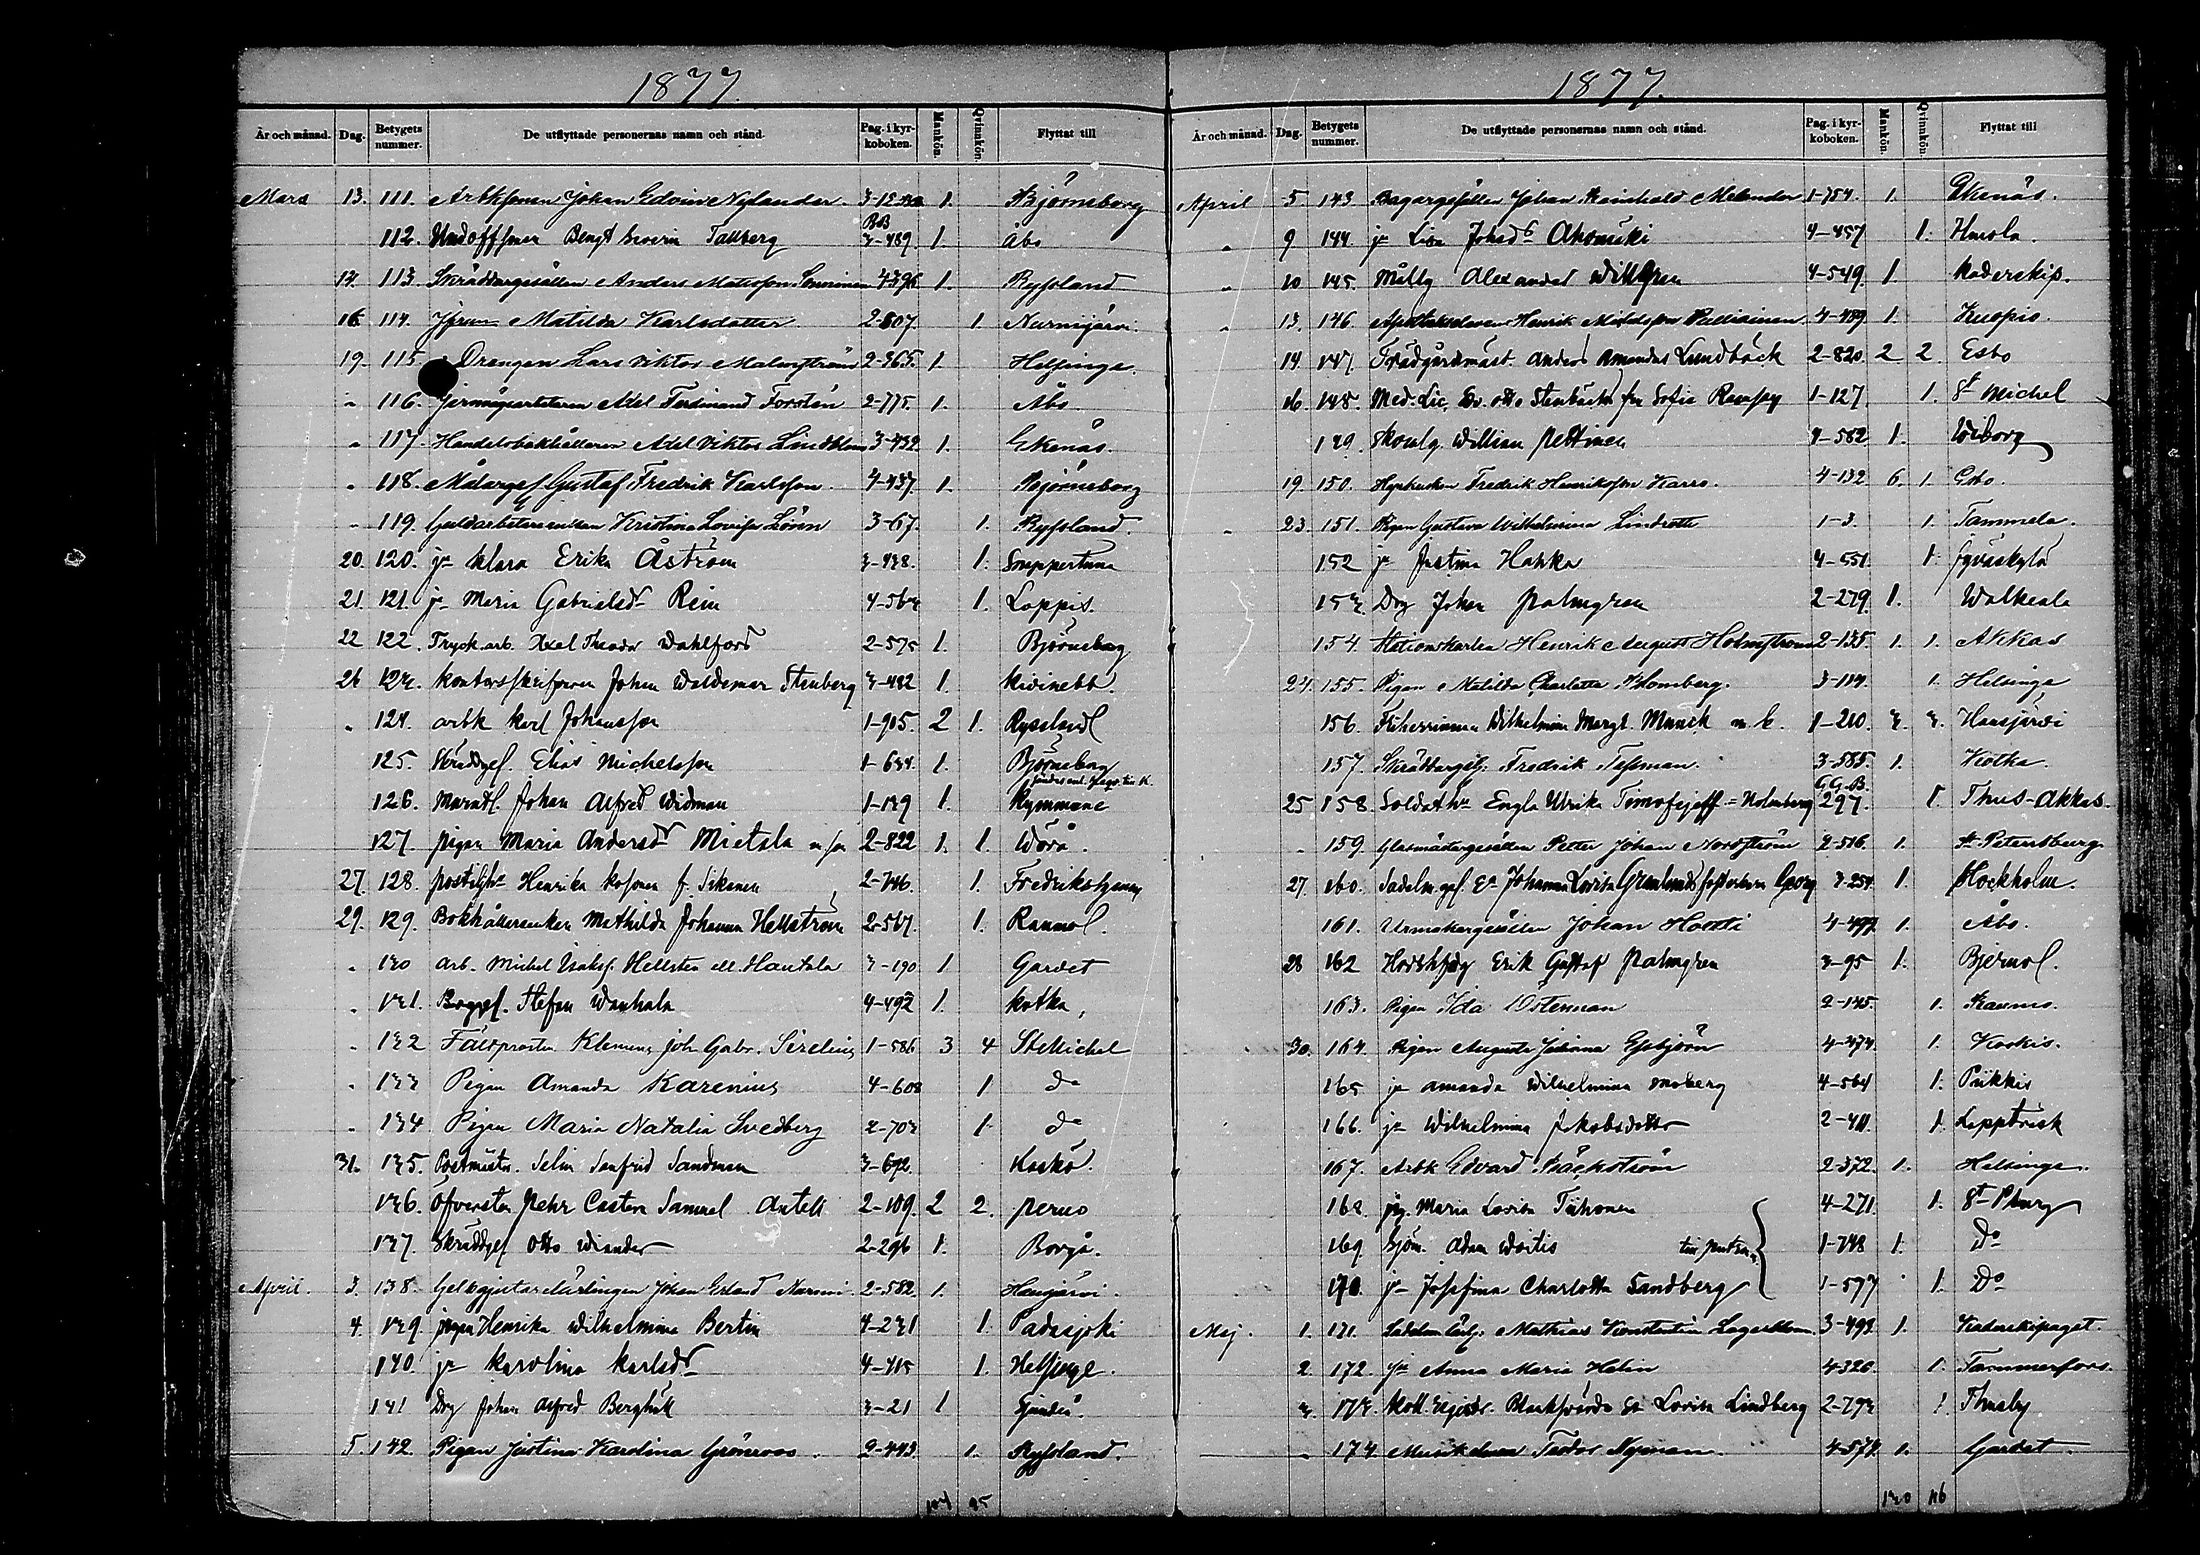 1877.
År och månad. Dag. Betygets nummer. De utflyttade personernas namn och stånd. Pag. i kyrkoboken. Mankön. Qvinnkön. Flyttat till
Mars 13. 111. Arbksonen Johan Edvin Nylander 3-12 1. Björneborg
112. Undoffsren Bengt Severin Tallberg BB 3-489. 1. Åbo
14. 113. Skräddargesällen Anders Matsson 4-396 1. Ryssland
16. 114. Jfrun Matilda Karlsdotter 2-807. 1. Nurmijärvi
19. 115. Drengen Lars Viktor Malmström 2-365. 1. Helsinge.
" 116. Jernvägsarbetaren Axel Ferdinand Forstén 2-775. 1. Åbo
" 117. Handelsbokhållaren Axel Viktor Lindblom 3-432. 1. Ekenäs.
" 118. Målargesl Gustaf Fredrik Karlsson 4-437. 1. Björneborg
" 119. Guldarbetareenkan Kristina Lovisa Lönn 3-67. 1. Ryssland.
20. 120. jn Klara Erika Åström 3-438. 1. Sagu
21. 121. jn Maria Gabrielsdr Rein 4-563 1. Loppis.
22 122. Tryck.arb. Axel Theodor Dahlfors 2-575 1. Björneborg
26 123. Kontorsskrifvaren Johan Waldemar Stenberg 3-482 1. Kivinebb.
" 124. arbk Karl Johansson 1-905. 2 1. Ryssland
125. Skräddgesl. Elias Michelsson 1-634. 1. Björneborg
126. Johan Alfred Widman 1-139 1. Kymmene
127. pigan Maria Andersdr Mietala m son 2-822 1. 1. Wörå.
27. 128. Henrika Kosonen f. Sikanen 2-746. 1. Fredrikshamn
29. 129. Bokhållarenkan Mathilda Johanna Hellström 2-567. 1. Raumo l.
" 130 arb. Michel Isaks. Hellsten ell. Hautala 3-190 1. Gardet
" 131. Stefan Wanhala 4-492 1. Kotka,
" 132 Fältprosten Klemens Joh. Gabr. Sirelius 1-586 3 4 St Michel
" 133 Pigan Amanda Karenius 4-608 1 do
" 134 Pigan Maria Natalia Svedberg 2-703 1. do
31. 135. Postmästr. Selim Sanfrid Sandman 3-692. Kaskö.
136. Öfversten Pehr Casten Samuel Antell 2-109. 2 2. Perno
137. Skräddgesl Otto Wiander 2-296 1. Borgå.
April. 3. 138. Gelbgjutarelärlingen Johan Erland Nurmi 2-582. 1. Hausjärvi.
4. 139 pigan Henrika Wilhelmina Bertin 4-231 1. Padasjoki
140 jn Karolina Karlsdr 4-415 1. Helsinge.
141 Drg Johan Alfred Berghäll 3-21 1 Sjundeå.
5. 142. Pigan Justina Karolina Grönroos 2-443. 1. Ryssland.
104 95
1877.
År och månad. Dag. Betygets nummer. De utflyttade personernas namn och stånd. Pag. i kyrkoboken. Mankön. Qvinnkön. Flyttat till
April 5 143 Bagargesällen Johan Reinhold Melander 1-754. 1. Ekenäs.
" 9 144 jn Lisa Johsdr Ahomäki 4-457 1. Huvola.
" 10 145. Alexander Willgren 4-549. 1. Kaderskåp.
" 13. 146. Apotekseleven Henrik Pulliainen 4-489 1. Kuopio.
14 147. Trädgårdmäst. Anders Amandus Lundbäck 2-820. 2 2. Esbo
16. 148. Med. Lic. Dr. Otto Stenbäcks fru Sofie Ramsay 1-127 1. St Michel
149. William Pettinen 4-582 1. Wiborg
19. 150. Fredrik Henriksson Karro. 4-132 6. 1. Esbo.
" 23. 151. Pigan Gustava Wilhelmina Lindroth 1-3. 1. Tammela.
152 jn Justina Hakka 4-551 1. Jyväskylä
153 Drg Johan Palmgren 2-279. 1. Walkeala
154. Stationskarlen Henrik August Holmström 2-135. 1. 1. Akkas
24. 155. Pigan Matilda Charlotta Blomberg. 3-114. 1. Helsinge
156. Friherrinnan Wilhelmina Margt. Munck m. b. 1-210. 3. 3. Hausjärvi
157. Skräddargesl. Fredrik Tessman. 3-585. 1. Kotka.
25 158. Soldath. Engla Ulrika Timofejeff = Holmberg G.G.B. 297. 1. Thus-Akkas.
" 159. Glasmästargesällen Petter Johan Nordström 2-516 1. St Petersburg
27. 160. Sadelm.gesl. Ea Johanna Lovisa Grönlunds fosterson Georg 3-254 1. Stockholm.
161. Urmakargesällen Johan Hortti 4-497 1. Åbo.
28 162 Erik Gustaf Palmgren 3-95 1. Bjerno l.
163. Pigan Ida Österman 2-145. 1. Raumo.
30. 164. Pigan Augusta Johanna Gestrin 4-474. 1. Karkis.
165 jn Amanda Wilhelmina Moberg 4-564 1. Pikkis
166. jn Wilhelmina Jakobsdotter 2-411. 1. Lappträsk
167. Arbk Edvard Bäckström 2-372. 1. Helsinge.
168. pig. Maria Lovisa Tiihonen 4-271. 1. St Pburg
169 Sjöm. Adam Wartis 1-748 1. Do
170. jn Josefina Charlotta Sandberg 1-597 1. Do
Maj. 1. 171. Sadelm.lärl. Mathias Konstantin Lagerblom 3-492 1. Kaderskåpaget.
2. 172. jn Anna Maria Helin 4-320. 1. Tammerfors.
3. 173. Ea Lovisa Lindberg 2-793 1. Thusby
" 174 Teodor Nyman 4-574. 1. Gardet.
130 116